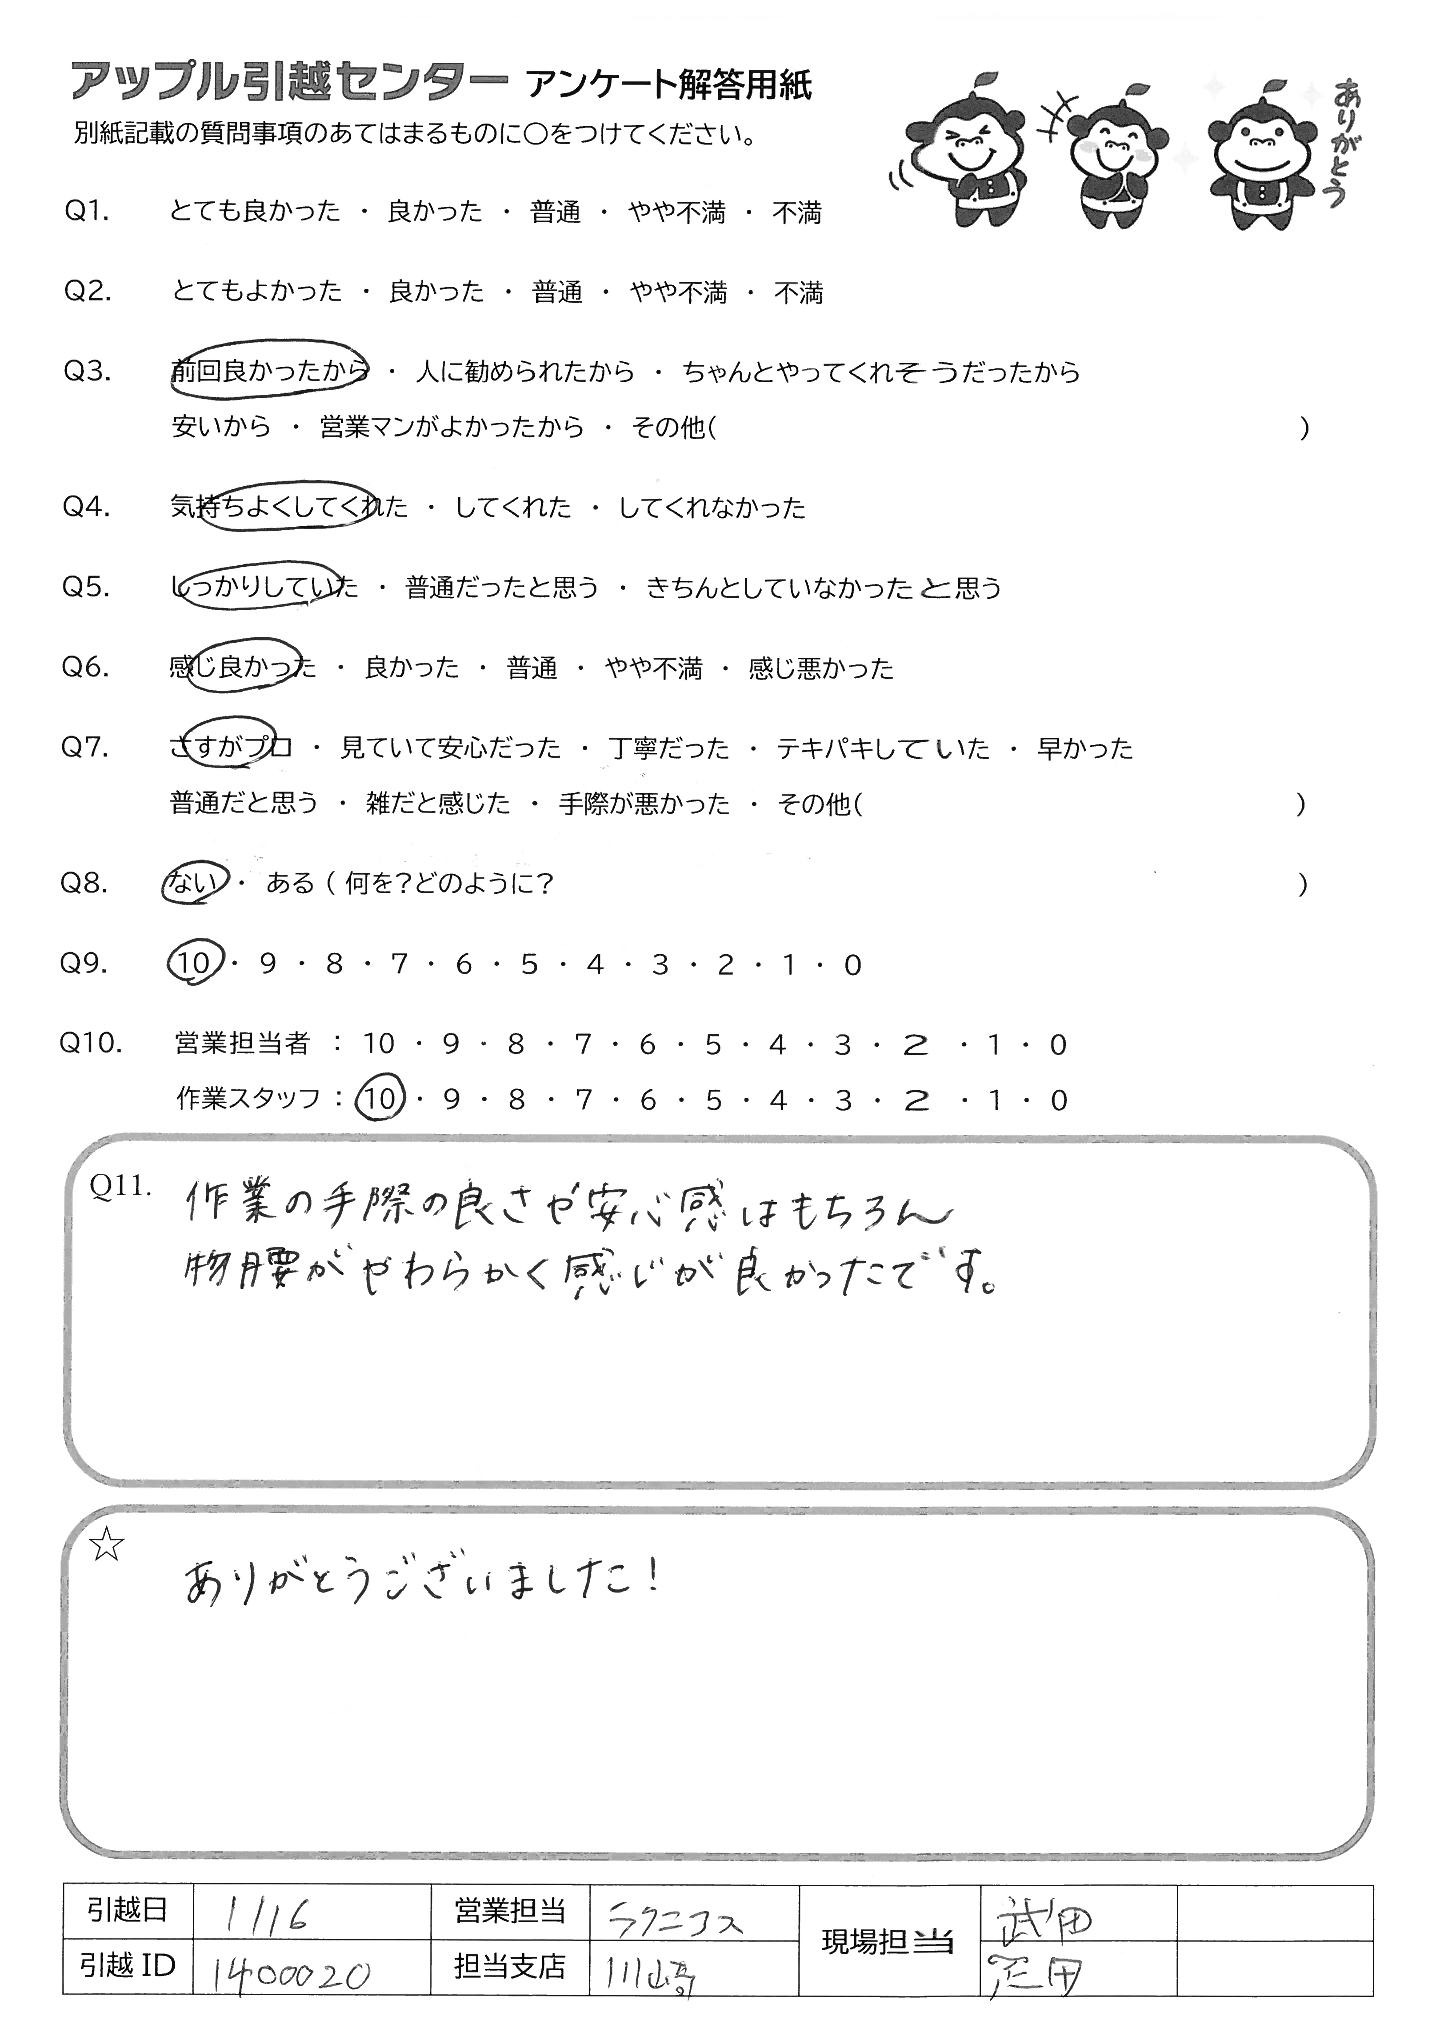 アップル引越センター アンケート解答用紙
別紙記載の質問事項のあてはまるものに○をつけてください。
ありがとう
Q1. とても良かった ・ 良かった ・ 普通 ・ やや不満 ・ 不満
Q2. とてもよかった ・ 良かった ・ 普通 ・ やや不満 ・ 不満
Q3. 前回良かったから ・ 人に勧められたから ・ ちゃんとやってくれそうだったから
安いから ・ 営業マンがよかったから ・ その他( )
Q4. 気持ちよくしてくれた ・ してくれた ・ してくれなかった
Q5. しっかりしていた ・ 普通だったと思う ・ きちんとしていなかったと思う
Q6. 感じ良かった ・ 良かった ・ 普通 ・ やや不満 ・ 感じ悪かった
Q7. さすがプロ ・ 見ていて安心だった ・ 丁寧だった ・ テキパキしていた ・ 早かった
普通だと思う ・ 雑だと感じた ・ 手際が悪かった ・ その他( )
Q8. ない ・ ある ( 何を?どのように? )
Q9. 10 ・ 9 ・ 8 ・ 7 ・ 6 ・ 5 ・ 4 ・ 3 ・ 2 ・ 1 ・ 0
Q10. 営業担当者 : 10 ・ 9 ・ 8 ・ 7 ・ 6 ・ 5 ・ 4 ・ 3 ・ 2 ・ 1 ・ 0
作業スタッフ : 10 ・ 9 ・ 8 ・ 7 ・ 6 ・ 5 ・ 4 ・ 3 ・ 2 ・ 1 ・ 0
Q11. 作業の手際の良さや安心感はもちろん
物腰がやわらかく感じが良かったです。
☆
ありがとうございました!
引越日 1/16 営業担当 ラクニコス 現場担当 武田
引越ID 1400020 担当支店 川崎 疋田